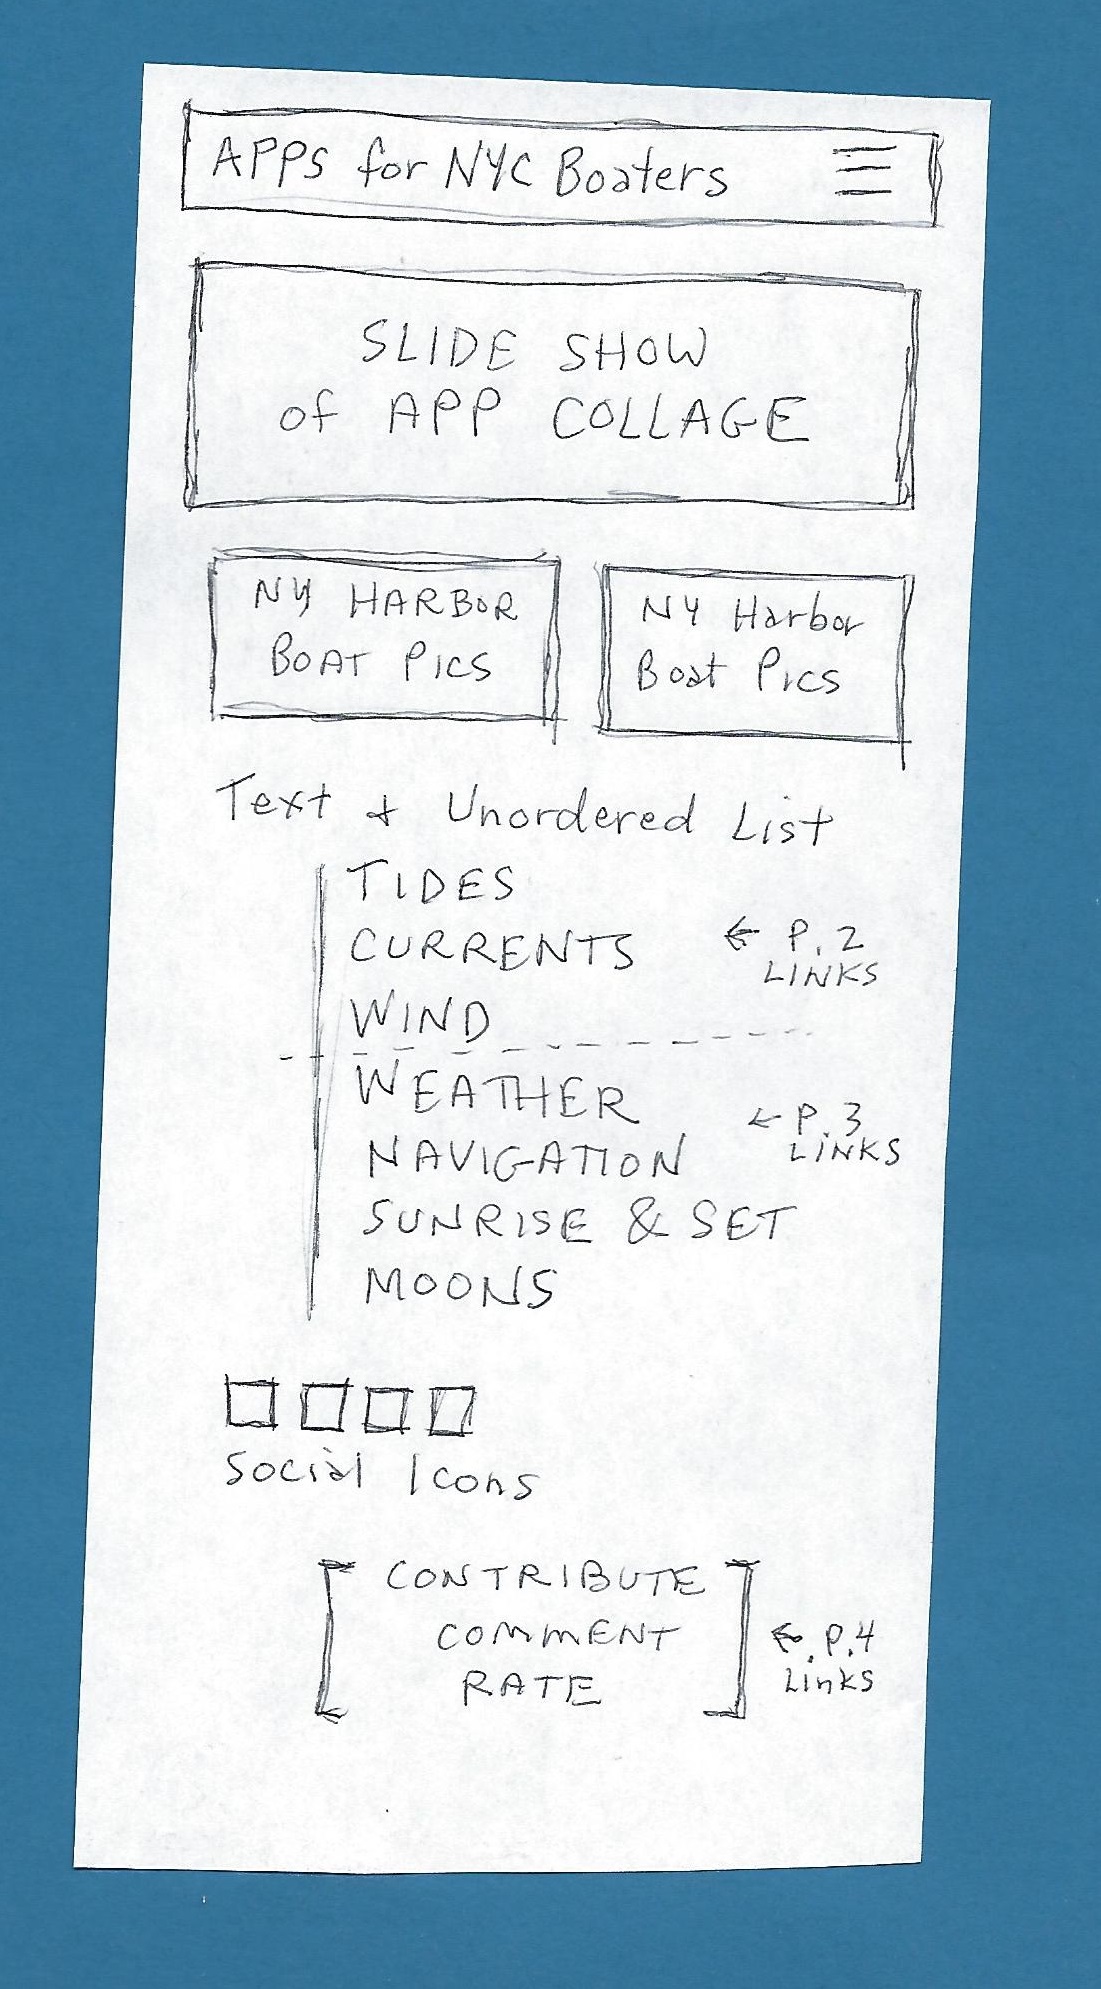 APPS for NYC Boaters
SLIDE SHOW
of APP COLLAGE
NY HARBOR
BOAT PICS
NY Harbor
Boat Pics
Text + Unordered List
TIDES
CURRENTS
← P. 2
LINKS
WIND
WEATHER
← P. 3
LINKS
NAVIGATION
SUNRISE & SET
MOONS
Social Icons
CONTRIBUTE
COMMENT
RATE
← P. 4
Links